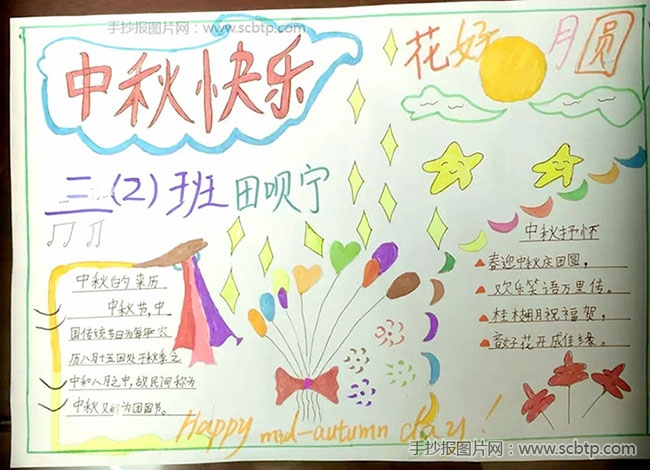 手抄报图片网:www.scbtp.com
中秋快乐
花好月圆
三(2)班田呗宁
中秋的来历
中秋节,中
国传统节日为每年农
历八月十五因处于秋季之
中和八月之中,故民间称为
中秋又称为团圆节。
中秋抒怀
喜迎中秋庆团圆,
欢乐笑语万里传。
桂树月祝福贺,
花开成佳缘。
Happy mid-autumn day!
手抄报图片网:www.scbtp.com